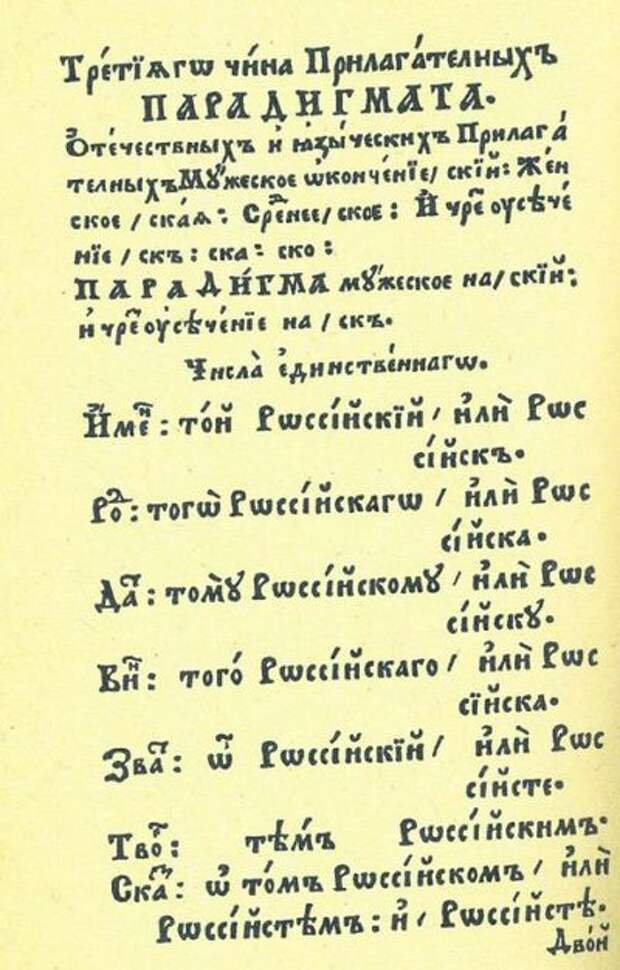 Тре́тїѧгѡ чи́на Прилага́телныхъ
ПАРАДИ́ГМАТА.
Ѻте́чествныхъ и҆ ꙗ҆зы́ческихъ Прилага́
телныхъ Мꙋ́жеское ѡ҆конче́нїе/ скїй: Же́н
ское / ска́ѧ: Сре́ⷣнее/ ское: И҆ чреⷥ оу҆сѣче́
нїе / скъ: ска: ско:
ПАРАДИ́ГМА мꙋ́жеское на/ скїй:
и҆ чреⷥ оу҆сѣче́нїе на / скъ.
Числа̀ є҆ди́нстве́ннагѡ.
И҆меⷩ҇: то́й Рѡссі́йскїй / и҆лѝ Рѡс
сі́йскъ.
Роⷣ: тогѡ̀ Рѡссі́йскагѡ / и҆лѝ Рѡс
сі́йска.
Даⷮ: томꙋ̀ Рѡссі́йскомꙋ / и҆лѝ Рѡс
сі́йскꙋ.
Виⷩ: того́ Рѡссі́йскаго / и҆лѝ Рѡс
сї́йска.
Зваⷮ: ѽ Рѡссі́йскїй / и҆лѝ Рѡс
сі́йсте.
Твоⷬ: тѣ́мъ Рѡссі́йскимъ.
Скаⷥ: ѡ҆ то́мъ Рѡссі́йскомъ / и҆лѝ
Рѡссі́йстѣмъ: и҆ / Рѡссі́йстѣ.
Дво́й